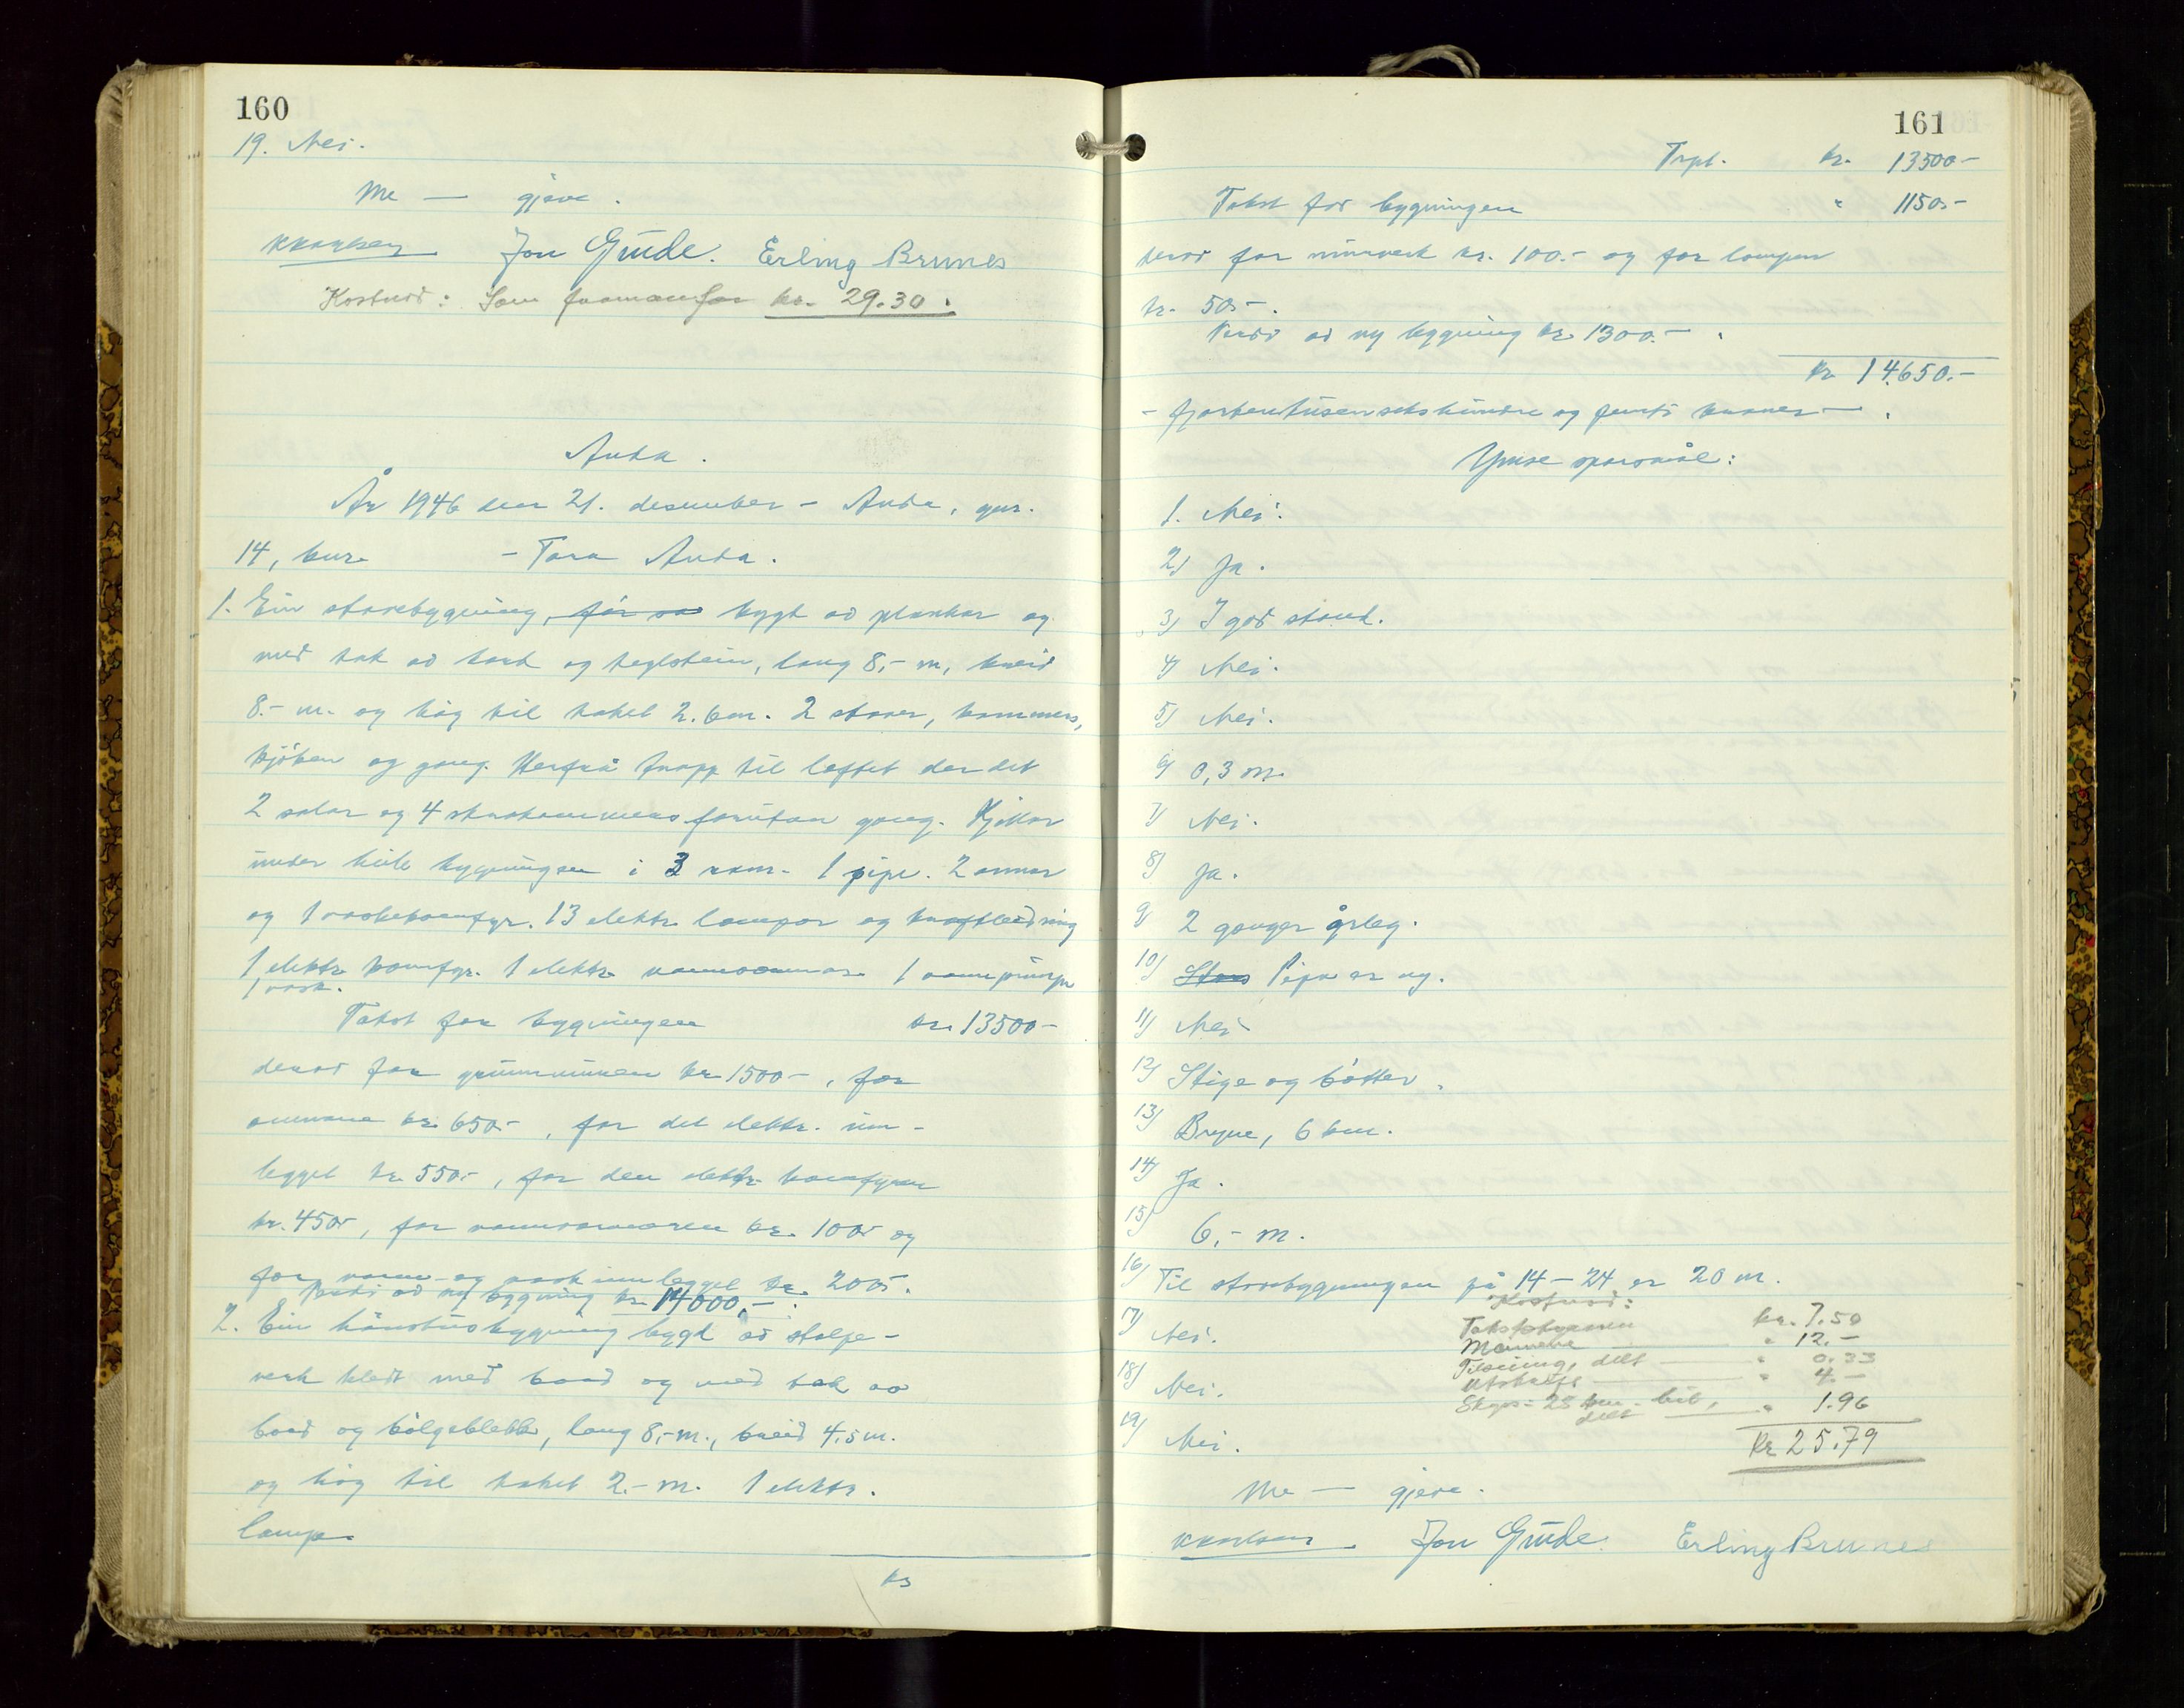 160
19. Nei.
Me — gjeve.
Jon Gude. Erling Brunes
Kostnad: Som framanfor kr. 29.30.
Anda.
År 1946 den 21. desember – Anda, gnr.
14, bnr. – Tora Anda.
1. Ein stovebygning, før va bygt av plankar og
med tak av bord og teglstein, lang 8,- m, breid
8.- m. og høg til taket 2.6 m. 2 stover, kammers,
kjøken og gang. Herfrå trapp til loftet der det
2 salar og 4 skråkammers forutan gang. Kjellar
under heile bygningen i 3 rom. 1 pipe. 2 omnar
og 1 vaskekomfyr. 13 elektr. lampor og kraftledning
1 elektr. komfyr. 1 elektr. vannvarmar. 1 vannpumpe
1 vask.
Takst for bygningen kr. 13500-
derav for grunnmuren kr 1500-, for
omnane kr. 650.-, for det elektr. inn-
legget kr. 550.-, for den elektr. komfyren
kr. 450-, for vannvarmaren kr. 100- og
for vann- og vaskinnlegget kr. 200-.
Verdi av ny bygning kr. 14000,-.
2. Ein hønsehusbygning bygd av stolpe-
verk kledt med bord og med tak av
bord og bølgeblekk, lang 8,- m., breid 4.5 m.
og høg til taket 2.- m. 1 elektr.
lampe
kr
161
Trpt. kr. 13500-
Takst for bygningen " 1150.-
derav for murverk kr. 100.- og for lampen
kr. 50.-.
Verdi av ny bygning kr. 1300.-.
kr 14650.-
- fjortentusensekshundre og femti kroner -.
Ymse spørsmål:
1. Nei.
2) Ja.
3) I god stand.
4) Nei.
5) Nei.
6) 0,3 m.
7) Nei.
8) Ja.
9) 2 ganger årleg.
10) Pipa er ny.
11) Nei
12) Stige og bøtter.
13) Bryne, 6 km.
14) Ja.
15) 6,- m.
16) Til stovebygningen på 14-24 er 20 m.
Kostnad:
17) Nei.
Takstskrivaren kr. 7.50
Mennene " 12.-
Tilseiing, delt " 0.33
18) Nei.
Utskrift " 4.-
Skyss 28 km bil, delt " 1.96
19) Nei.
kr 25.79
Me — gjeve.
Jon Gude. Erling Brunes